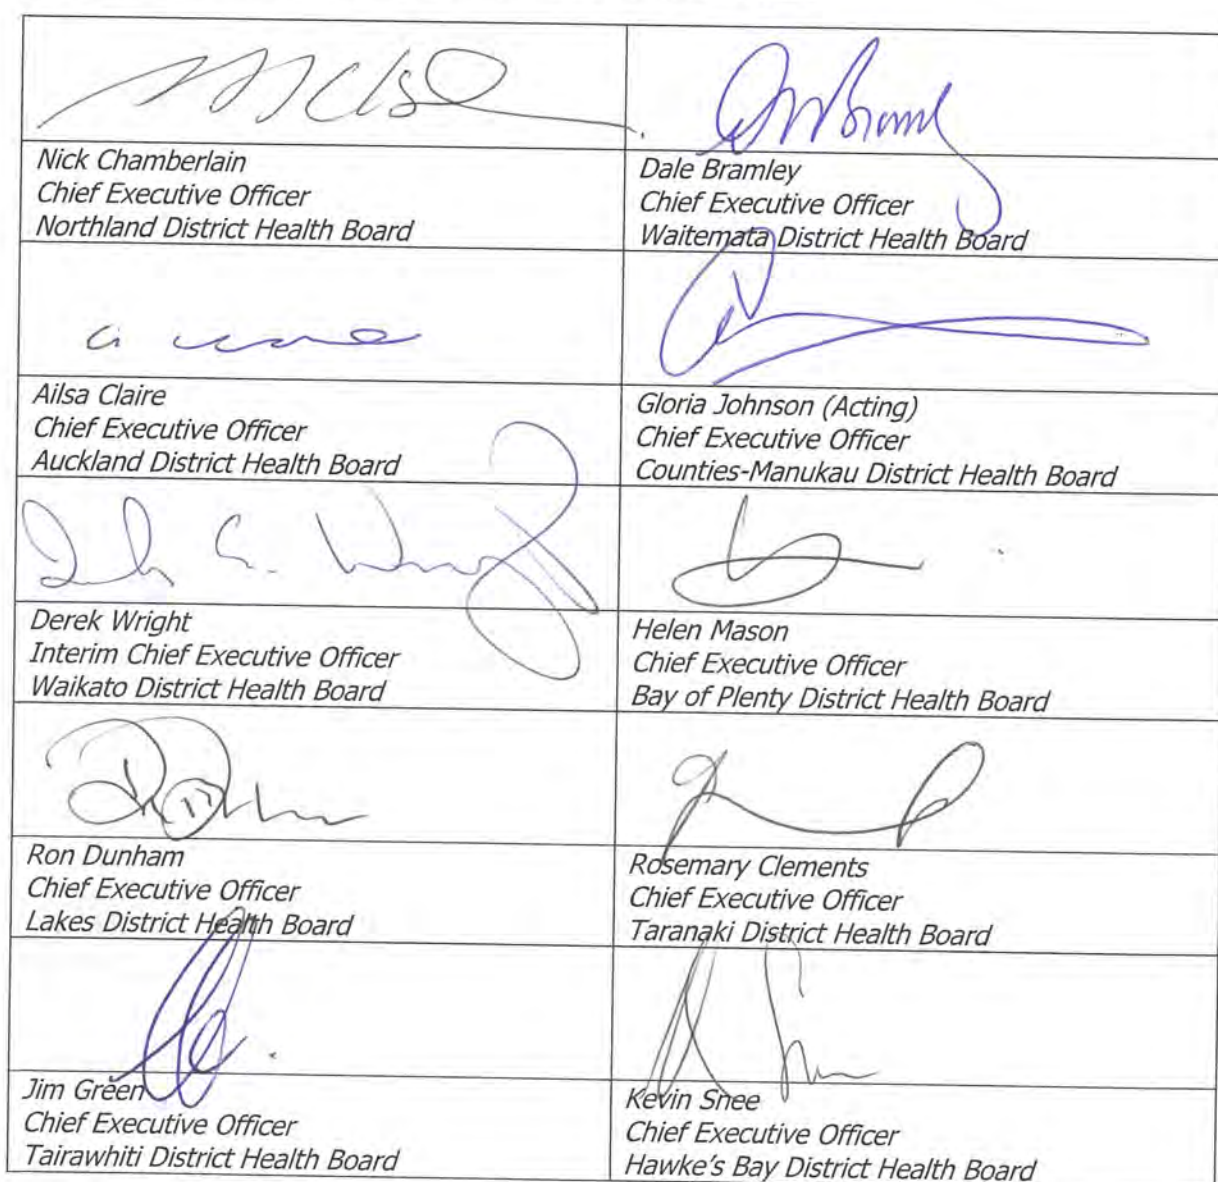 Nick Chamberlain
Chief Executive Officer
Northland District Health Board
Dale Bramley
Chief Executive Officer
Waitemata District Health Board
Ailsa Claire
Chief Executive Officer
Auckland District Health Board
Gloria Johnson (Acting)
Chief Executive Officer
Counties-Manukau District Health Board
Derek Wright
Interim Chief Executive Officer
Waikato District Health Board
Helen Mason
Chief Executive Officer
Bay of Plenty District Health Board
Ron Dunham
Chief Executive Officer
Lakes District Health Board
Rosemary Clements
Chief Executive Officer
Taranaki District Health Board
Jim Green
Chief Executive Officer
Tairawhiti District Health Board
Kevin Snee
Chief Executive Officer
Hawke's Bay District Health Board